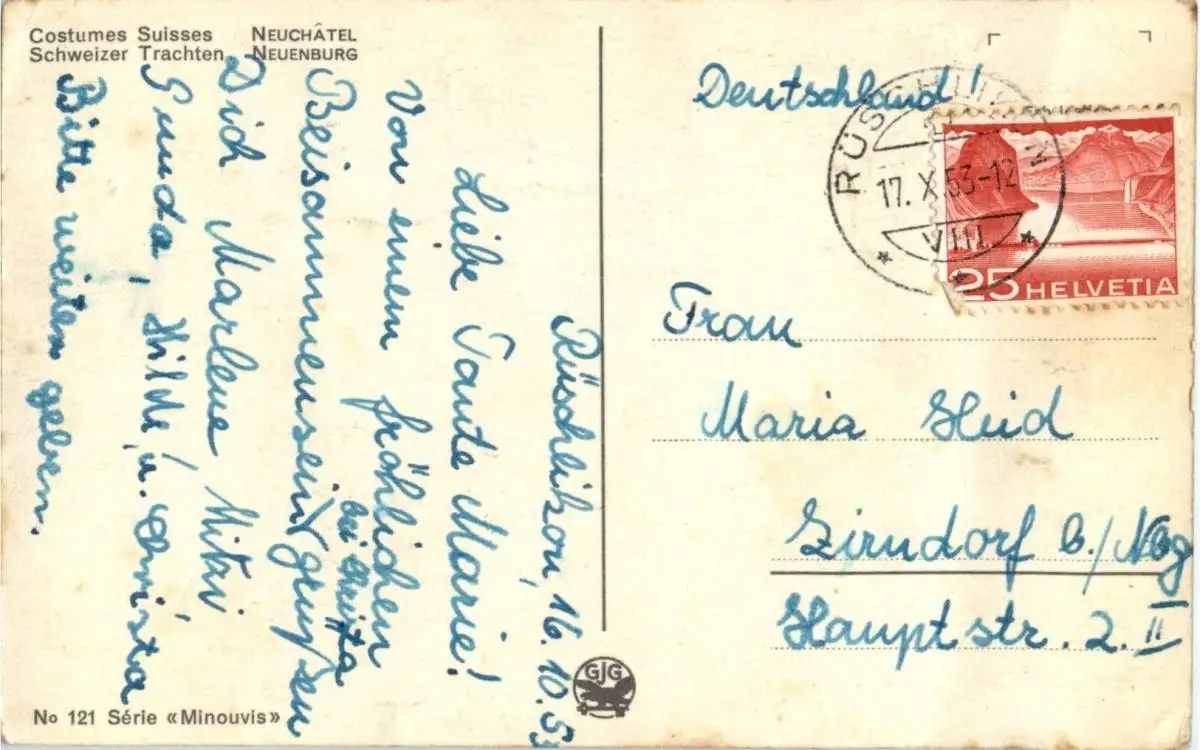 Costumes Suisses NEUCHÂTEL
Schweizer Trachten NEUENBURG
Rüschlikon, 16.10.53
Liebe Tante Marie!
Von einem fröhlichen
Beisammensein grüßen
bei Christa
Dich Marlene Mitzi
Gunda, Hilde, u. Christa
Bitte weiter geben.
No 121 Série «Minouvis»
GJG
Deutschland!
RÜSCHLIKON
17.X.53-12
VIII
25 HELVETIA
Frau
Maria Heid
Zirndorf b./Nbg
Hauptstr. 2. II